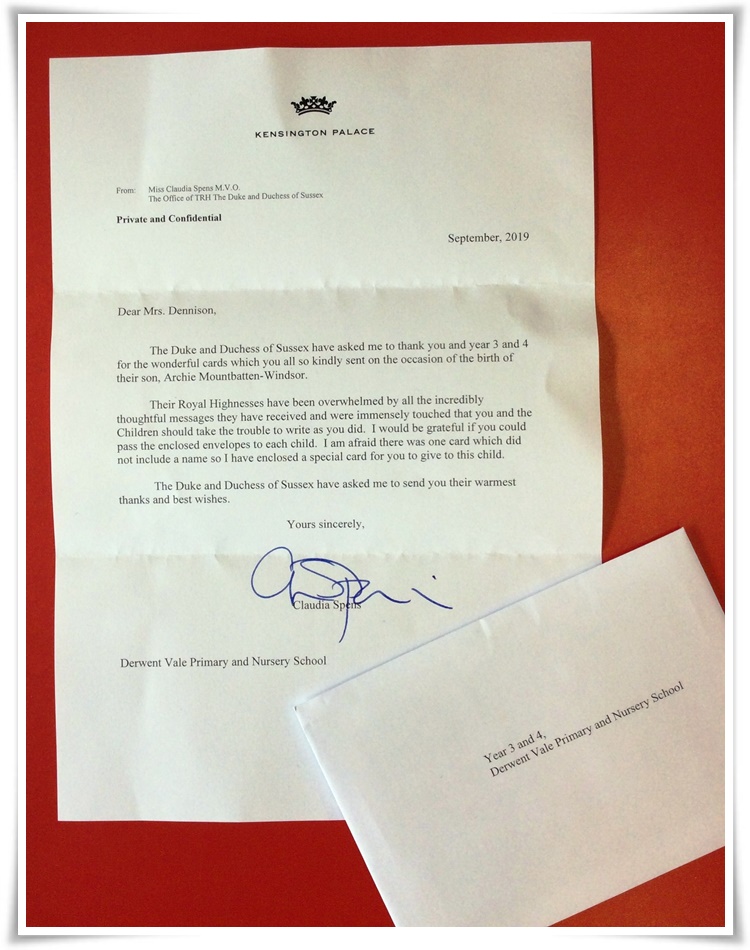 KENSINGTON PALACE
From: Miss Claudia Spens M.V.O.
The Office of TRH The Duke and Duchess of Sussex
Private and Confidential
September, 2019
Dear Mrs. Dennison,
The Duke and Duchess of Sussex have asked me to thank you and year 3 and 4
for the wonderful cards which you all so kindly sent on the occasion of the birth of
their son, Archie Mountbatten-Windsor.
Their Royal Highnesses have been overwhelmed by all the incredibly
thoughtful messages they have received and were immensely touched that you and the
Children should take the trouble to write as you did. I would be grateful if you could
pass the enclosed envelopes to each child. I am afraid there was one card which did
not include a name so I have enclosed a special card for you to give to this child.
The Duke and Duchess of Sussex have asked me to send you their warmest
thanks and best wishes.
Yours sincerely,
Claudia Spens
Derwent Vale Primary and Nursery School
Year 3 and 4,
Derwent Vale Primary and Nursery School